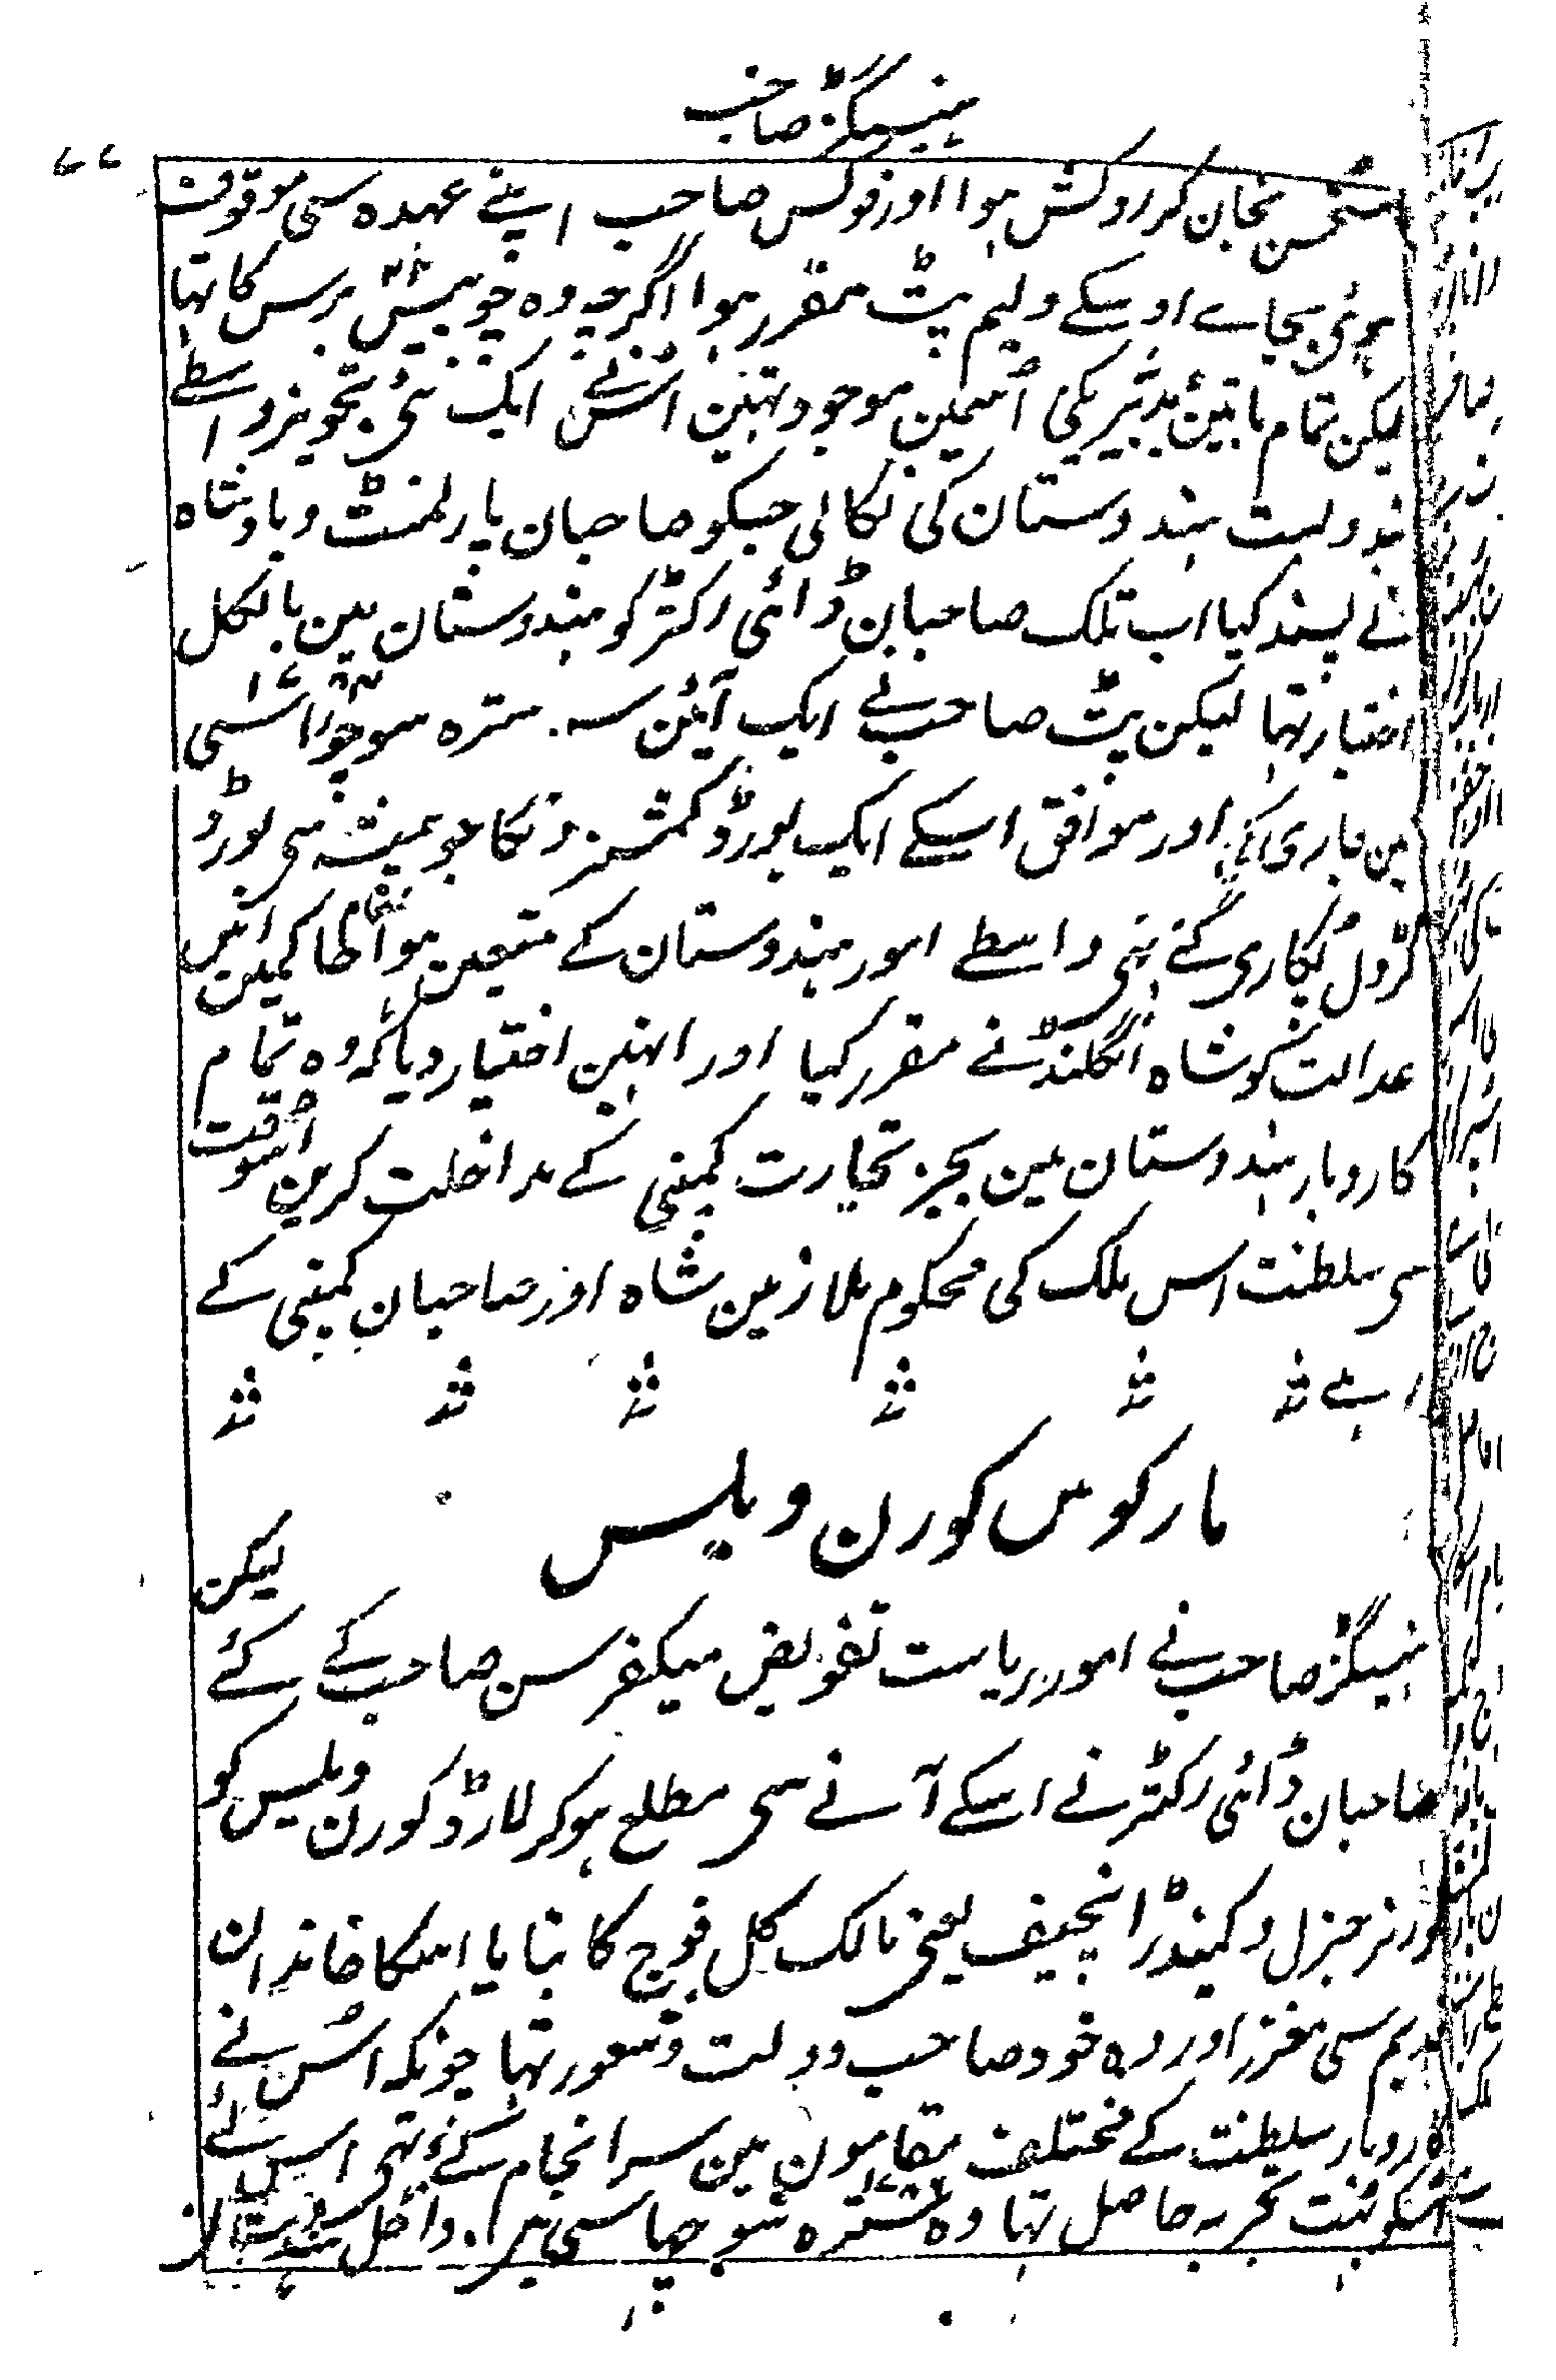 ہیسٹنگز صاحب
۷۷
مستحسن نجان کر روکش ہوا اور فوکس صاحب اپنے عہدہ سی موقوف
ہوئی بجاے اوسکے ولیم پٹ مقرر ہوا اگرچہ وہ چوبیس ۲۴ برس کا تہا
لیکن تمام باتین تدبیر کی اُسمین موجود تہین اُسنے ایک نئی تجویز واسطے
بندوبست ہندوستان کی نکالی جسکو صاحبان پارلمنٹ و بادشاہ
نے پسند کیا اب تلک صاحبان ڈائی رکٹر کو ہندوستان مین بالکل
اختیار تہا لیکن پٹ صاحب نے ایک آئین سنہ سترہ سو چوراسی ۱۷۸۴
مین جاری کی اور موافق اسکے ایک بورڈ کمشنرونکا جو ہمیشہ سی بورڈ و
کڑول پکاری گئے ہی واسطے امور ہندوستان کے متعین ہوا نظما حاکمین اس
عدالت کو شاہ انگلنڈ نے مقرر کیا اور انہین اختیار دیا کہ وہ تمام
کاروبار ہندوستان مین بجز تجارت کمپنی کے مداخلت کرین اُسوقت
سی سلطنت اس ملک کی محکوم ملازمین شاہ اور صاحبان کمپنی کے
رہے
مارکوس کورن ویلس
لیکن
ہیسٹنگز صاحب نے امور ریاست تفویض میکفرسن صاحب کے کئے
صاحبان ڈائی رکٹر نے اسکے آنے سی مطلع ہوکر لارڈ کورن ویلس کو
گورنر جنرل و کمینڈر انچیف یعنی مالک کل فوج کا بنایا اسکا خاندان
قدیم سی معزز اور وہ خود صاحب دولت و شعور تہا چونکہ اسُ نے
کاروبار سلطنت کے مختلف مقامون مین سرانجام کئے تہی اس لئے
اُسکو بہت تجربہ حاصل تہا وہ سترہ سو چہاسی ۱۷۸۶ مین داخل ہندوستان